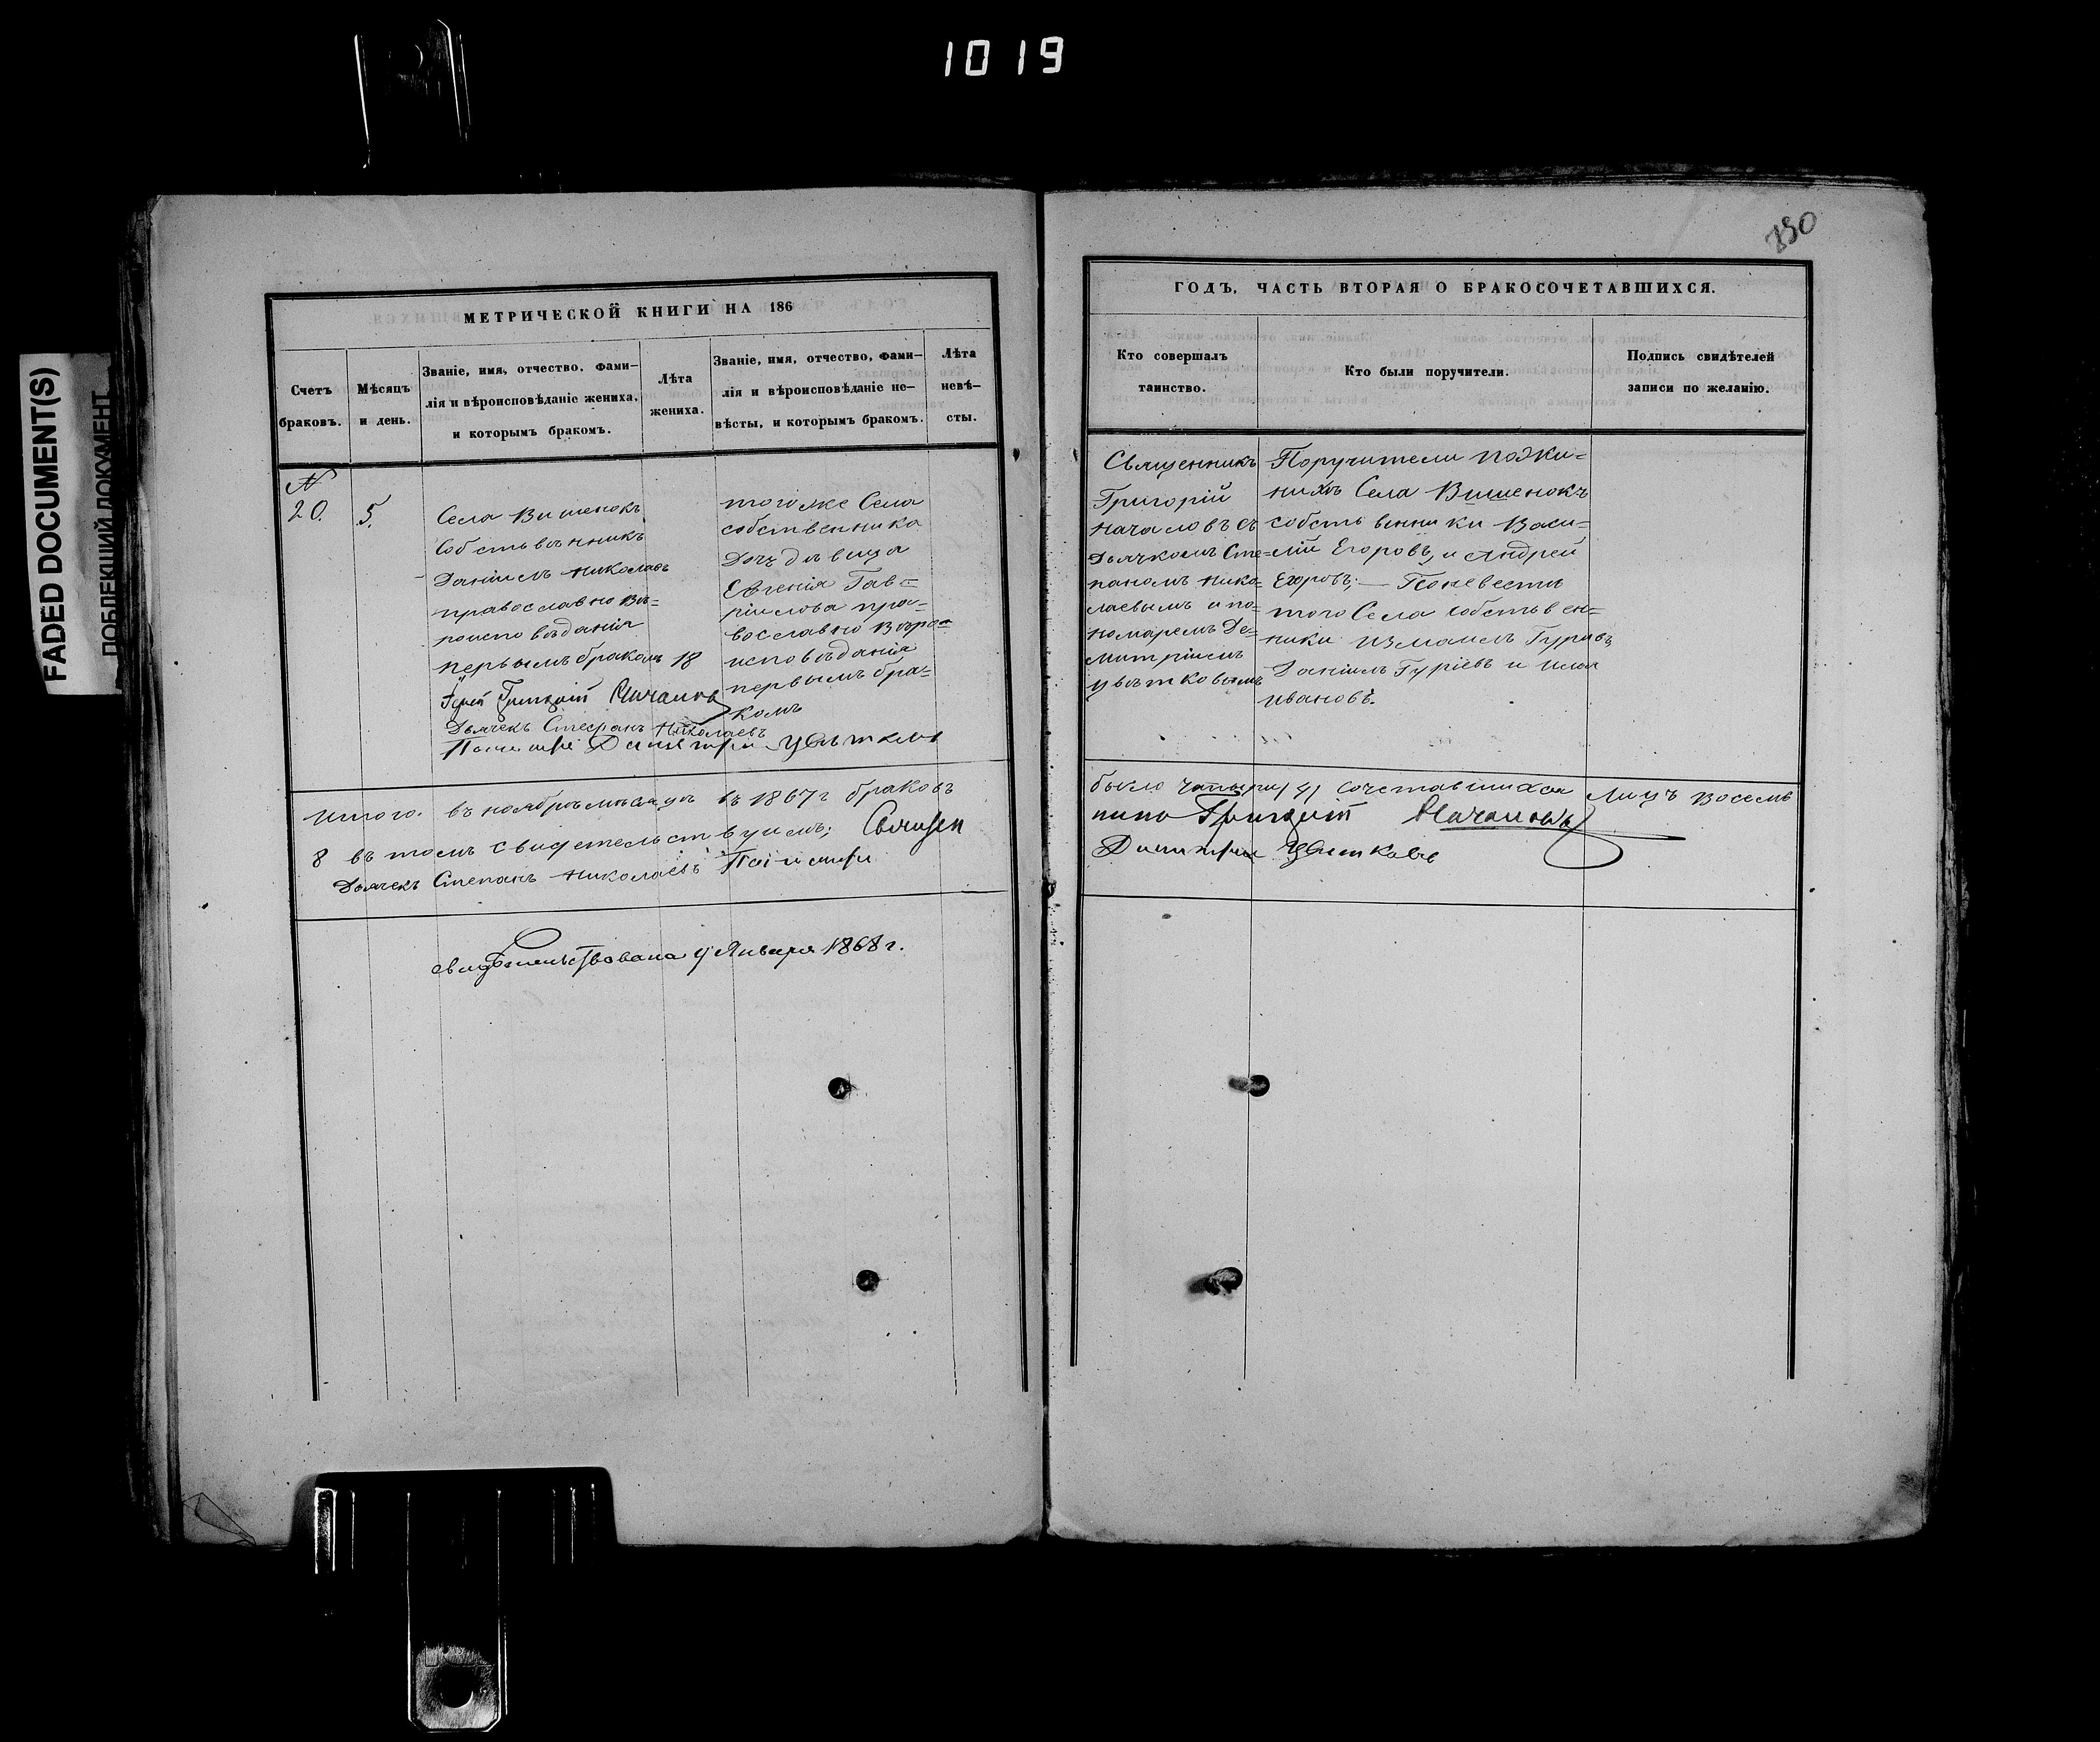 1019
FADED DOCUMENT(S)
ПОБЛЕКШИЙ ДОКУМЕНТ
МЕТРИЧЕСКОЙ КНИГИ НА 186
Счетъ
браковъ.
Мѣсяцъ
и день.
Званіе, имя, отчество, фами-
лія и вѣроисповѣданіе жениха,
и которымъ бракомъ.
Лѣта
жениха.
Званіе, имя, отчество, фами-
лія и вѣроисповѣданіе не-
вѣсты, и которымъ бракомъ.
Лѣта
невѣ-
сты.
N
20.
5.
Села Вишенокъ
собственникъ
Даніилъ Николаевъ
православно вѣ=
роисповѣданія
первымъ бракомъ
18
Григорій Началовъ
Дьячекъ Стефанъ Николаевъ
Цвѣтковъ
тогоже Села
собственника
Дочь дѣвица
Евгенія Гав=
ріилова пра=
вославно вѣро=
исповѣданія
первымъ бра=
комъ
Итого. въ ноябрѣ мѣсяцѣ въ 1867 г браковъ
8 въ томъ свидетельствуемъ: Священ
Дьячекъ Степанъ Николаевъ
свидѣтельствована 4 Января 1868 г.
250
ГОДЪ, ЧАСТЬ ВТОРАЯ О БРАКОСОЧЕТАВШИХСЯ.
Кто совершалъ
таинство.
Кто были поручители.
Подпись свидѣтелей
записи по желанію.
Священникъ
Григорій
Началовъ съ
Дьячкомъ Сте=
паномъ Нико=
лаевымъ и по=
номаремъ Де=
митріемъ
Цвѣтковымъ
Поручители по жи=
нихѣ Села Вишенокъ
собственники Васи=
лій Егоровъ, и Андрей
Егоровъ; — По невесты
того Села собствен=
ники Измаилъ Гуріевъ,
Даніилъ Гуріевъ и Илья
Ивановъ.
было чатыри /4/ сочетавшихся лицъ восемь
никъ Григорій Началовъ
Димитрій Цвѣтковъ